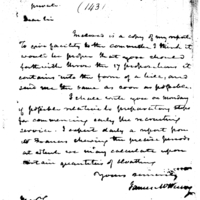 private
(143)
Dear Sir
Inclosed is a copy of my report.
To give facility to the committee I think it
would be proper that you should
forthwith throw the 17 proposed in it
contains into the form of a bill, and
send me the same as soon as possible.
I shall write you on Monday
if possible relative to preparatory steps
for commencing early the recruiting
service. I expect daily a report from
M Francis shewing the precise periods
at which we may calculate upon
certain quantities of cloathing
Yours sincerely
James McHenry